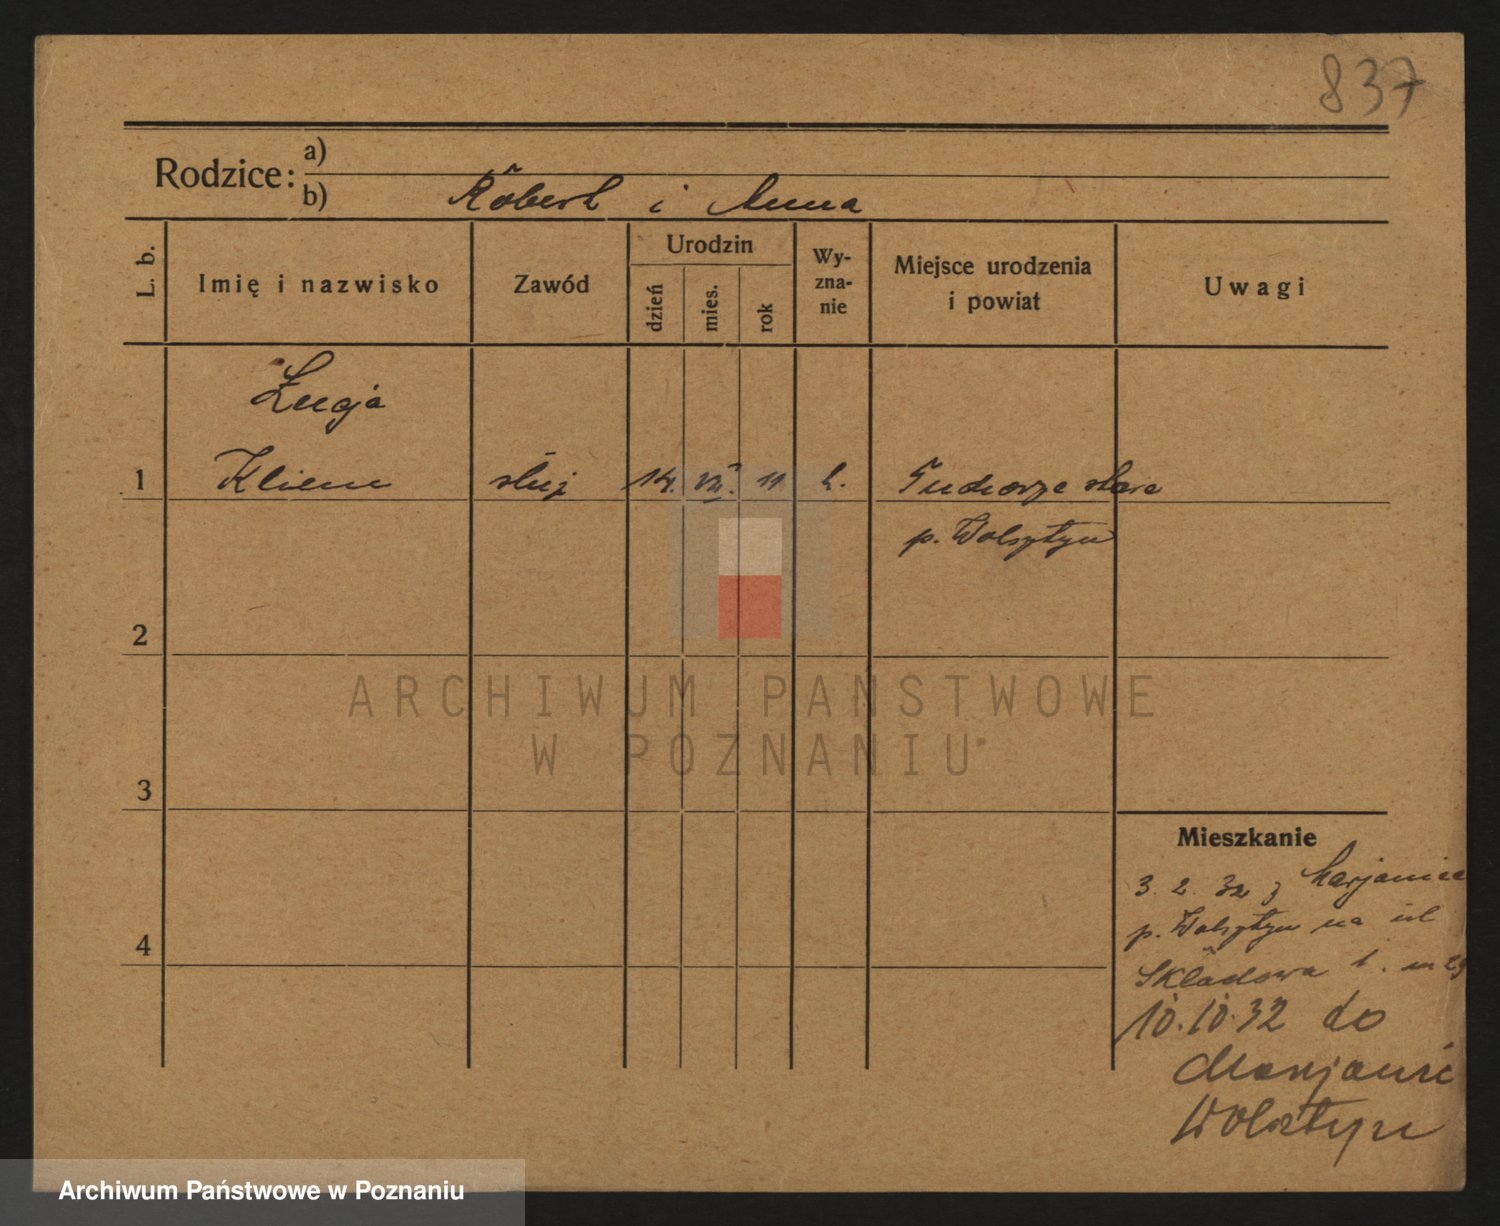 837
Rodzice:
a)
b) Robert i Anna
L. b.
Imię i nazwisko
Zawód
Urodzin
dzień
mies.
rok
Wy-
zna-
nie
Miejsce urodzenia
i powiat
Uwagi
Łucja
1 Kliem służ 14. VII. 11 stara
p. Wolsztyn
2
ARCHIWUM PAŃSTWOWE
W POZNANIU
3
Mieszkanie
3. 2. 32 z
p. Wolsztyn na ul
4
Składowa 1. m 29
10.10.32 do
Wolsztyn
Archiwum Państwowe w Poznaniu